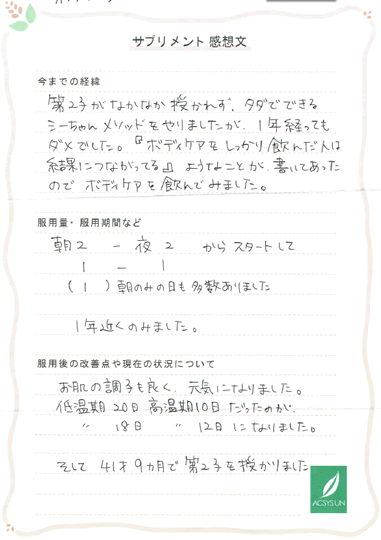 サプリメント 感想文
今までの経緯
第2子がなかなか授かれず、タダでできる
シーちゃんメソッドをやりましたが、1年経っても
ダメでした。『ボディケアをしっかり飲んだ人は
結果につながってる』ようなことが、書いてあった
ので ボディケアを飲んでみました。
服用量・服用期間など
朝2 ー 夜2 からスタートして
1 ー 1
(1) 朝のみの日も多数ありました
1年近くのみました。
服用後の改善点や現在の状況について
お肌の調子も良く、元気になりました。
低温期20日 高温期10日だったのが、
〃 18日 〃 12日になりました。
そして 41才9カ月で第2子を授かりました
ACSYS.UN